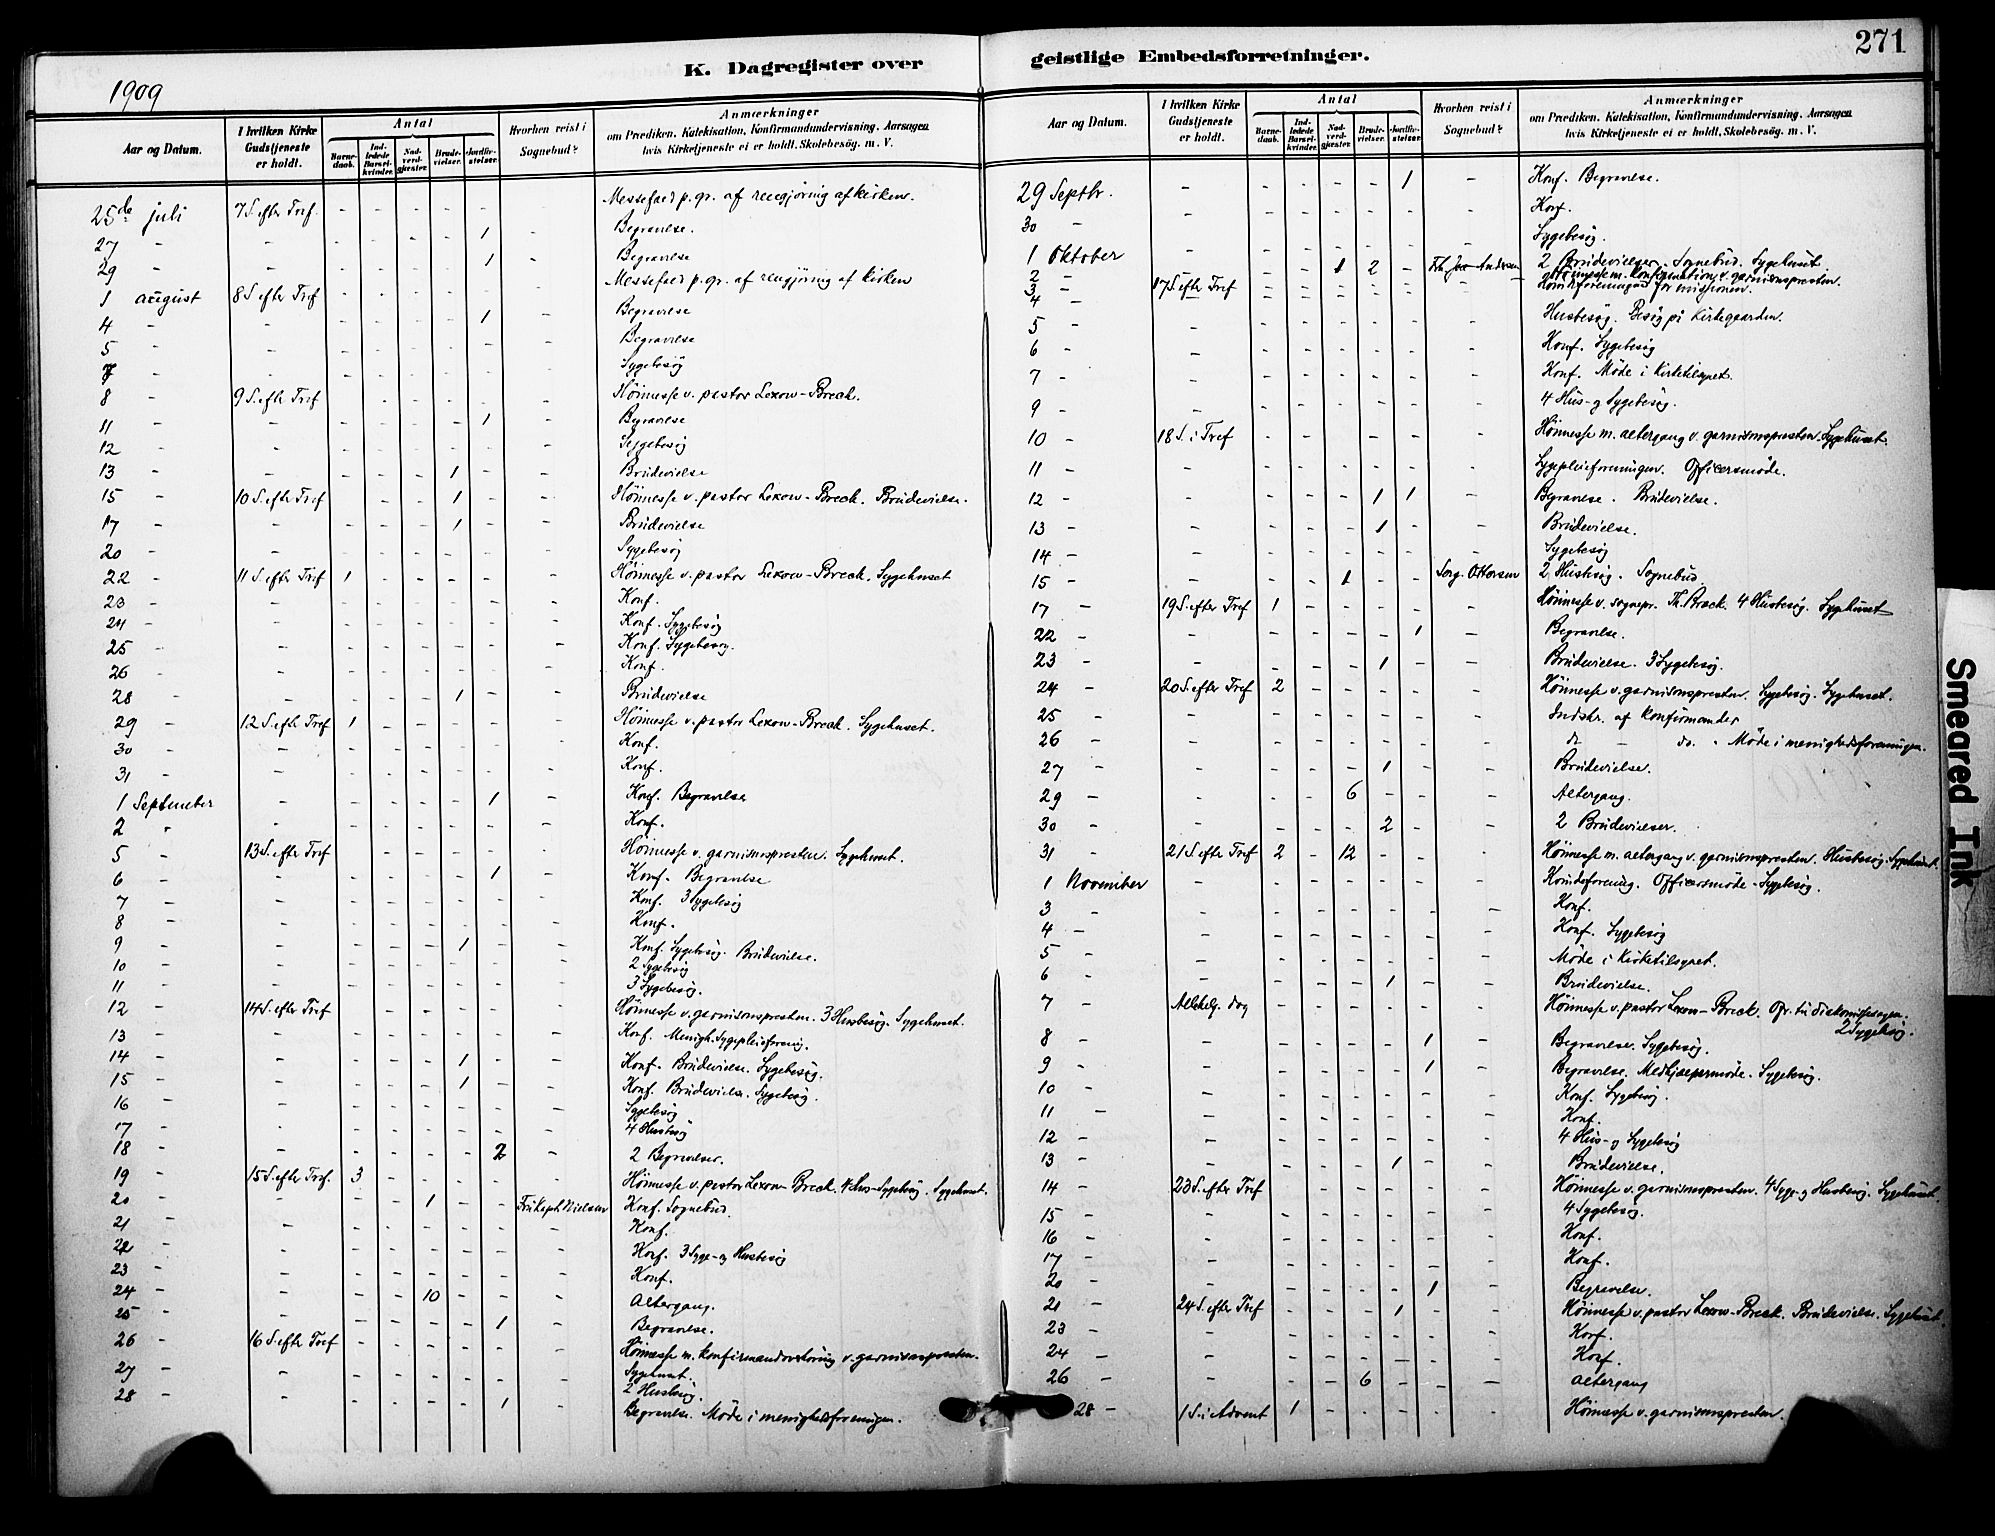 K. Dagregister over geistlige Embedsforretninger.
271
1909
Aar og Datum.
I hvilken Kirke Gudstjeneste er holdt.
Antal
Barne-daab.
Ind-ledede Barsel-kvinder.
Nad-verd-gjæster.
Brude-vielser.
Jordfæ-stelser.
Hvorhen reist i Sognebud?
Anmærkninger
om Prædiken, Katekisation, Konfirmandundervisning, Aarsagen
hvis Kirketjeneste ei er holdt, Skolebesög. m. V.
25de juli 7 S. efter Tref. - - - - - - Messefald p. gr. af rengjøring af kirken.
27 - - - - - - 1 - Begravelse.
29 - - - - - - 1 - Begravelse
1 august 8 S. efter Tref - - - - - - Messefald p. gr. af rengjøring af kirken
4 - - - - - - 1 - Begravelse
5 - - - - - - - - Begravelse
7 - - - - - - - - Sygebesøg
8 - 9 S. efter Tref - - - - - - Høimesse v. pastor Lexow-Breck.
11 - - - - - - 1 - Begravelse
12 - - - - - - - - Sygebesøg
13 - - - - - 1 - - Brudevielse
15 - 10 S. efter Tref - - - 1 - - Høimesse v. pastor Lexow-Breck. Brudevielse.
17 - - - - - 1 - - Brudevielse
20 - - - - - - - - Sygebesøg
22 - 11 S. efter Tref 1 - - - - - Høimesse v. pastor Lexow-Breck. Sygehuset
23 - - - - - - - - Konf.
24 - - - - - - - - Konf. Sygebesøg
25 - - - - - - - - Konf. Sygebesøg.
26 - - - - - - - - Konf.
28 - - - - - 1 - - Brudevielse
29 - 12 S. efter Tref 1 - - - - - Høimesse v. pastor Lexow-Breck. Sygehuset.
30 - - - - - - - - Konf.
31 - - - - - - - - Konf.
1 September - - - - - 1 - Konf. Begravelse
2 " - - - - - - - Konf.
5 - 13 S. efter Tref - - - - - - Høimesse v. garnisonspresten. Sygehuset.
6 - - - - - - 1 - Konf. Begravelse
7 - - - - - - - - Konf. 3 Sygebesøg
8 - - - - - - - - Konf.
9 - - - - - 1 - - Konf. Sygebesøg. Brudevielse.
10 - - - - - - - - 2 Sygebesøg
11 - - - - - - - - 3 Sygebesøg.
12 - 14 S. efter Tref - - - - - - Høimesse v. garnisonspresten. 3 Husbesøg. Sygehuset.
13 - - - - - - - - Konf. Menigh. Sygepleieforening.
14 - - - - - 1 - - Konf. Brudevielse. Sygebesøg.
15 - - - - - 1 - - Konf. Brudevielse. Sygebesøg.
16 - - - - - - - - Sygebesøg
17 - - - - - - - - 4 Husbesøg
18 - - - - - - 2 - 2 Begravelser.
19 - 15 S. efter Tref. 3 - - - - - Høimesse v. pastor Lexow-Breck. 4 hus-Sygebesøg. Sygehuset.
20 - - - - 1 - - Fru Kapt. Nielsen Konf. Sognebud.
21 - - - - - - - - Konf.
22 - - - - - - - - Konf. 3 Syge- og Husbesøg
23 - - - - - - - - Konf.
24 - - - - 10 - - - Altergang.
25 - - - - - - 1 - Begravelse.
26 - 16 S. efter Tref - - - - - - Høimesse m. konfirmandoverhøring v. garnisonspresten. Sygehuset.
27 - - - - - - - - 2 Husbesøg.
28 - - - - - - 1 - Begravelse. Møde i menighedsforeningen.
Aar og Datum.
I hvilken Kirke Gudstjeneste er holdt.
Antal
Barne-daab.
Ind-ledede Barsel-kvinder.
Nad-verd-gjæster.
Brude-vielser.
Jordfæ-stelser.
Hvorhen reist i Sognebud?
Anmærkninger
om Prædiken, Katekisation, Konfirmandundervisning, Aarsagen
hvis Kirketjeneste ei er holdt, Skolebesög. m. V.
29 Septbr. - - - - - 1 - Konf. Begravelse.
30 - - - - - - - - Konf.
1 Oktober - - - - - - - Sygebesøg.
2 - - - - 1 2 - Andersen 2 Brudevielser. Sognebud. Sygehuset.
3 - 17 S. efter Tref - - - - - - Høimesse m. konfirmation v. garnisonspresten.
4 - - - - - - - - Kvindeforeningen for missionen.
5 - - - - - - - - Husbesøg. Besøg på Kirkegaarden.
6 - - - - - - - - Konf. Sygebesøg
7 - - - - - - - - Konf. Møde i Kirketilsynet.
9 - - - - - - - - 4 Hus- og Sygebesøg.
10 - 18 S. i Tref - - - - - - Høimesse m. altergang v. garnisonspresten. Sygehuset.
11 - - - - - - - - Sygepleieforeningen. Officersmøde.
12 - - - - - 1 1 - Begravelse. Brudevielse.
13 - - - - - 1 - - Brudevielse.
14 - - - - - - - - Sygebesøg
15 - - - - 1 - - Serg. Ottersen 2 Husbesøg. Sognebud.
17 - 19 S. efter Tref 1 - - - - - Høimesse v. sognepr. Th. Brack. 4 Husbesøg. Sygehuset
22 - - - - - - 1 - Begravelse.
23 - - - - - 1 - - Brudevielse. 3 Sygebesøg.
24 - 20 S. efter Tref 2 - - - - - Høimesse v. garnisonspresten. Sygebesøg. Sygehuset.
25 - - - - - - - - Indskr. af konfirmander
26 - - - - - - - - do - do. - Møde i menighedsforeningen.
27 - - - - - 1 - - Brudevielse.
29 - - - - 6 - - - Altergang.
30 - - - - - 2 - - 2 Brudevielser.
31 - 21 S. efter Tref 2 - 12 - - - Høimesse m. altergang v. garnisonspresten. Husbesøg. Sygehuset.
1 November - - - - - - - Kvindeforening. Officersmøde. Sygebesøg.
3 - - - - - - - - Konf.
4 - - - - - - - - Konf. Sygebesøg
5 - - - - - - - - Møde i Kirketilsynet.
6 - - - - - 1 - - Brudevielse.
7 - Allehelg. dag - - - - - - Høimesse v. pastor Lexow-Breck. Ofr. til diakonissesagen. 2 Sygebesøg.
8 - - - - - - 1 - Begravelse. Sygebesøg.
9 - - - - - - 1 - Begravelse. Medhjælpermøde. Sygebesøg.
10 - - - - - - - - Konf. Sygebesøg.
11 - - - - - - - - Konf.
12 - - - - - - - - 4 Hus- og Sygebesøg
13 - - - - - 1 - - Brudevielse.
14 - 23 S. efter Tref - - - - - - Høimesse v. garnisonspresten. 4 Syge- og Husbesøg. Sygehuset
15 - - - - - - - - 4 Sygebesøg.
16 - - - - - - - - Konf.
17 - - - - - - - - Konf.
20 - - - - - - 1 - Begravelse.
21 - 24 S. efter Tref - - - 1 - - Høimesse v. pastor Lexow-Breck. Brudevielse. Sygehuset.
23 - - - - - - - - Konf.
24 - - - - - - - - Konf.
26 - - - - 6 - - - Altergang
28 - 1 S. i Advent 1 - - - - - Høimesse v. garnisonspresten.
Smeared Ink